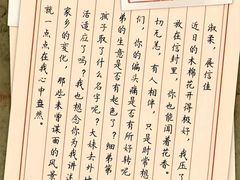 淑柔，展信佳
近日的木棉花开得极好，我压了
放在信封里，你也能闻着花香。
切无恙，有人相伴，只是时常想
们，你的偏头痛是否有所好转呢
弟的生意是否有起色了？细弟弟
孩子取了什么名字呢？大妹去外地
活适应了吗？我也想念你为我讲
家乡的变化，那些未曾谋面的风景
就一点点在我心中盎然。